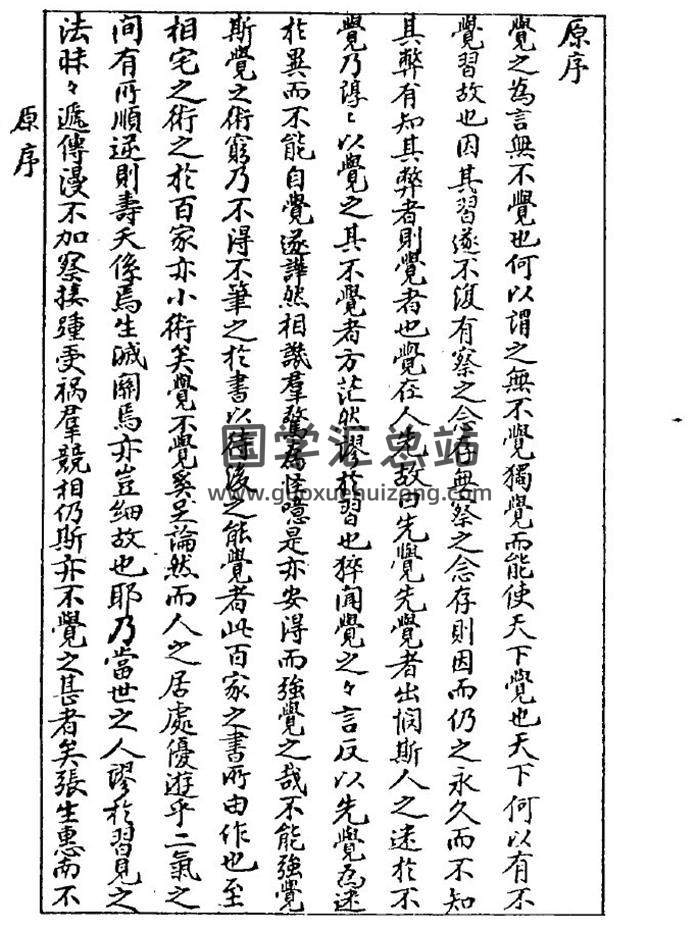 原序
覺之為言無不覺也何以謂之無不覺獨覺而能使天下覺也天下何以有不
覺習故也因其習遂不復有察之念存無察之念存則因而仍之永久而不知
其弊有知其弊者則覺者也覺在人先故曰先覺先覺者出憫斯人之迷於不
覺乃諄〻以覺之其不覺者方茫然謬於習也猝聞覺之〻言反以先覺為迷
於異而不能自覺遂譁然相譏羣驚為怪噫是亦安得而強覺之哉不能強覺
斯覺之術窮乃不得不筆之於書以待後之能覺者此百家之書所由作也至
相宅之術之於百家亦小術矣覺不覺奚足論然而人之居處優遊乎二氣之
間有所順逆則壽夭係焉生滅關焉亦豈細故也耶乃當世之人謬於習見之
法昧〻遞傳漫不加察接踵受禍羣競相仍斯亦不覺之甚者矣張生惠南不
原序
国学汇总站
www.guoxuehuizong.com